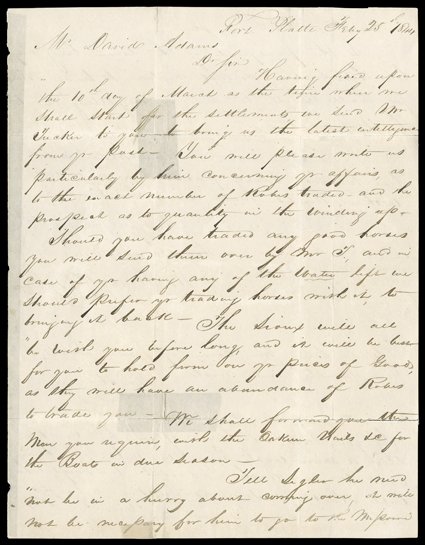 Fort Platte Feby 25th 1844
Mr David Adams
Dr Sir
Having fixed upon
the 10th day of March as the time when we
shall start for the settlements we send Mr
Tucker to you to bring us the latest intelligence
from yr Post — You will please write us
particularly by him concerning yr affairs, as
to the exact number of Robes traded and the
prospect as to quantity in the winding up.
Should you have traded any good horses
you will send them over by Mr T, and in
case of yr having any of the Water left we
should prefer yr trading horses with it to
bringing it back — The Sioux will all
be with you before long, and it will be best
for you to hold from on yr prices of Goods,
as they will have an abundance of Robes
to trade you — We shall forward you the
Men you require, with the Oakum Nails &c for
the Boats in due season —
Tell Sigler he need
not be in a hurry about coming over, it will
not be necessary for him to go to the Missouri